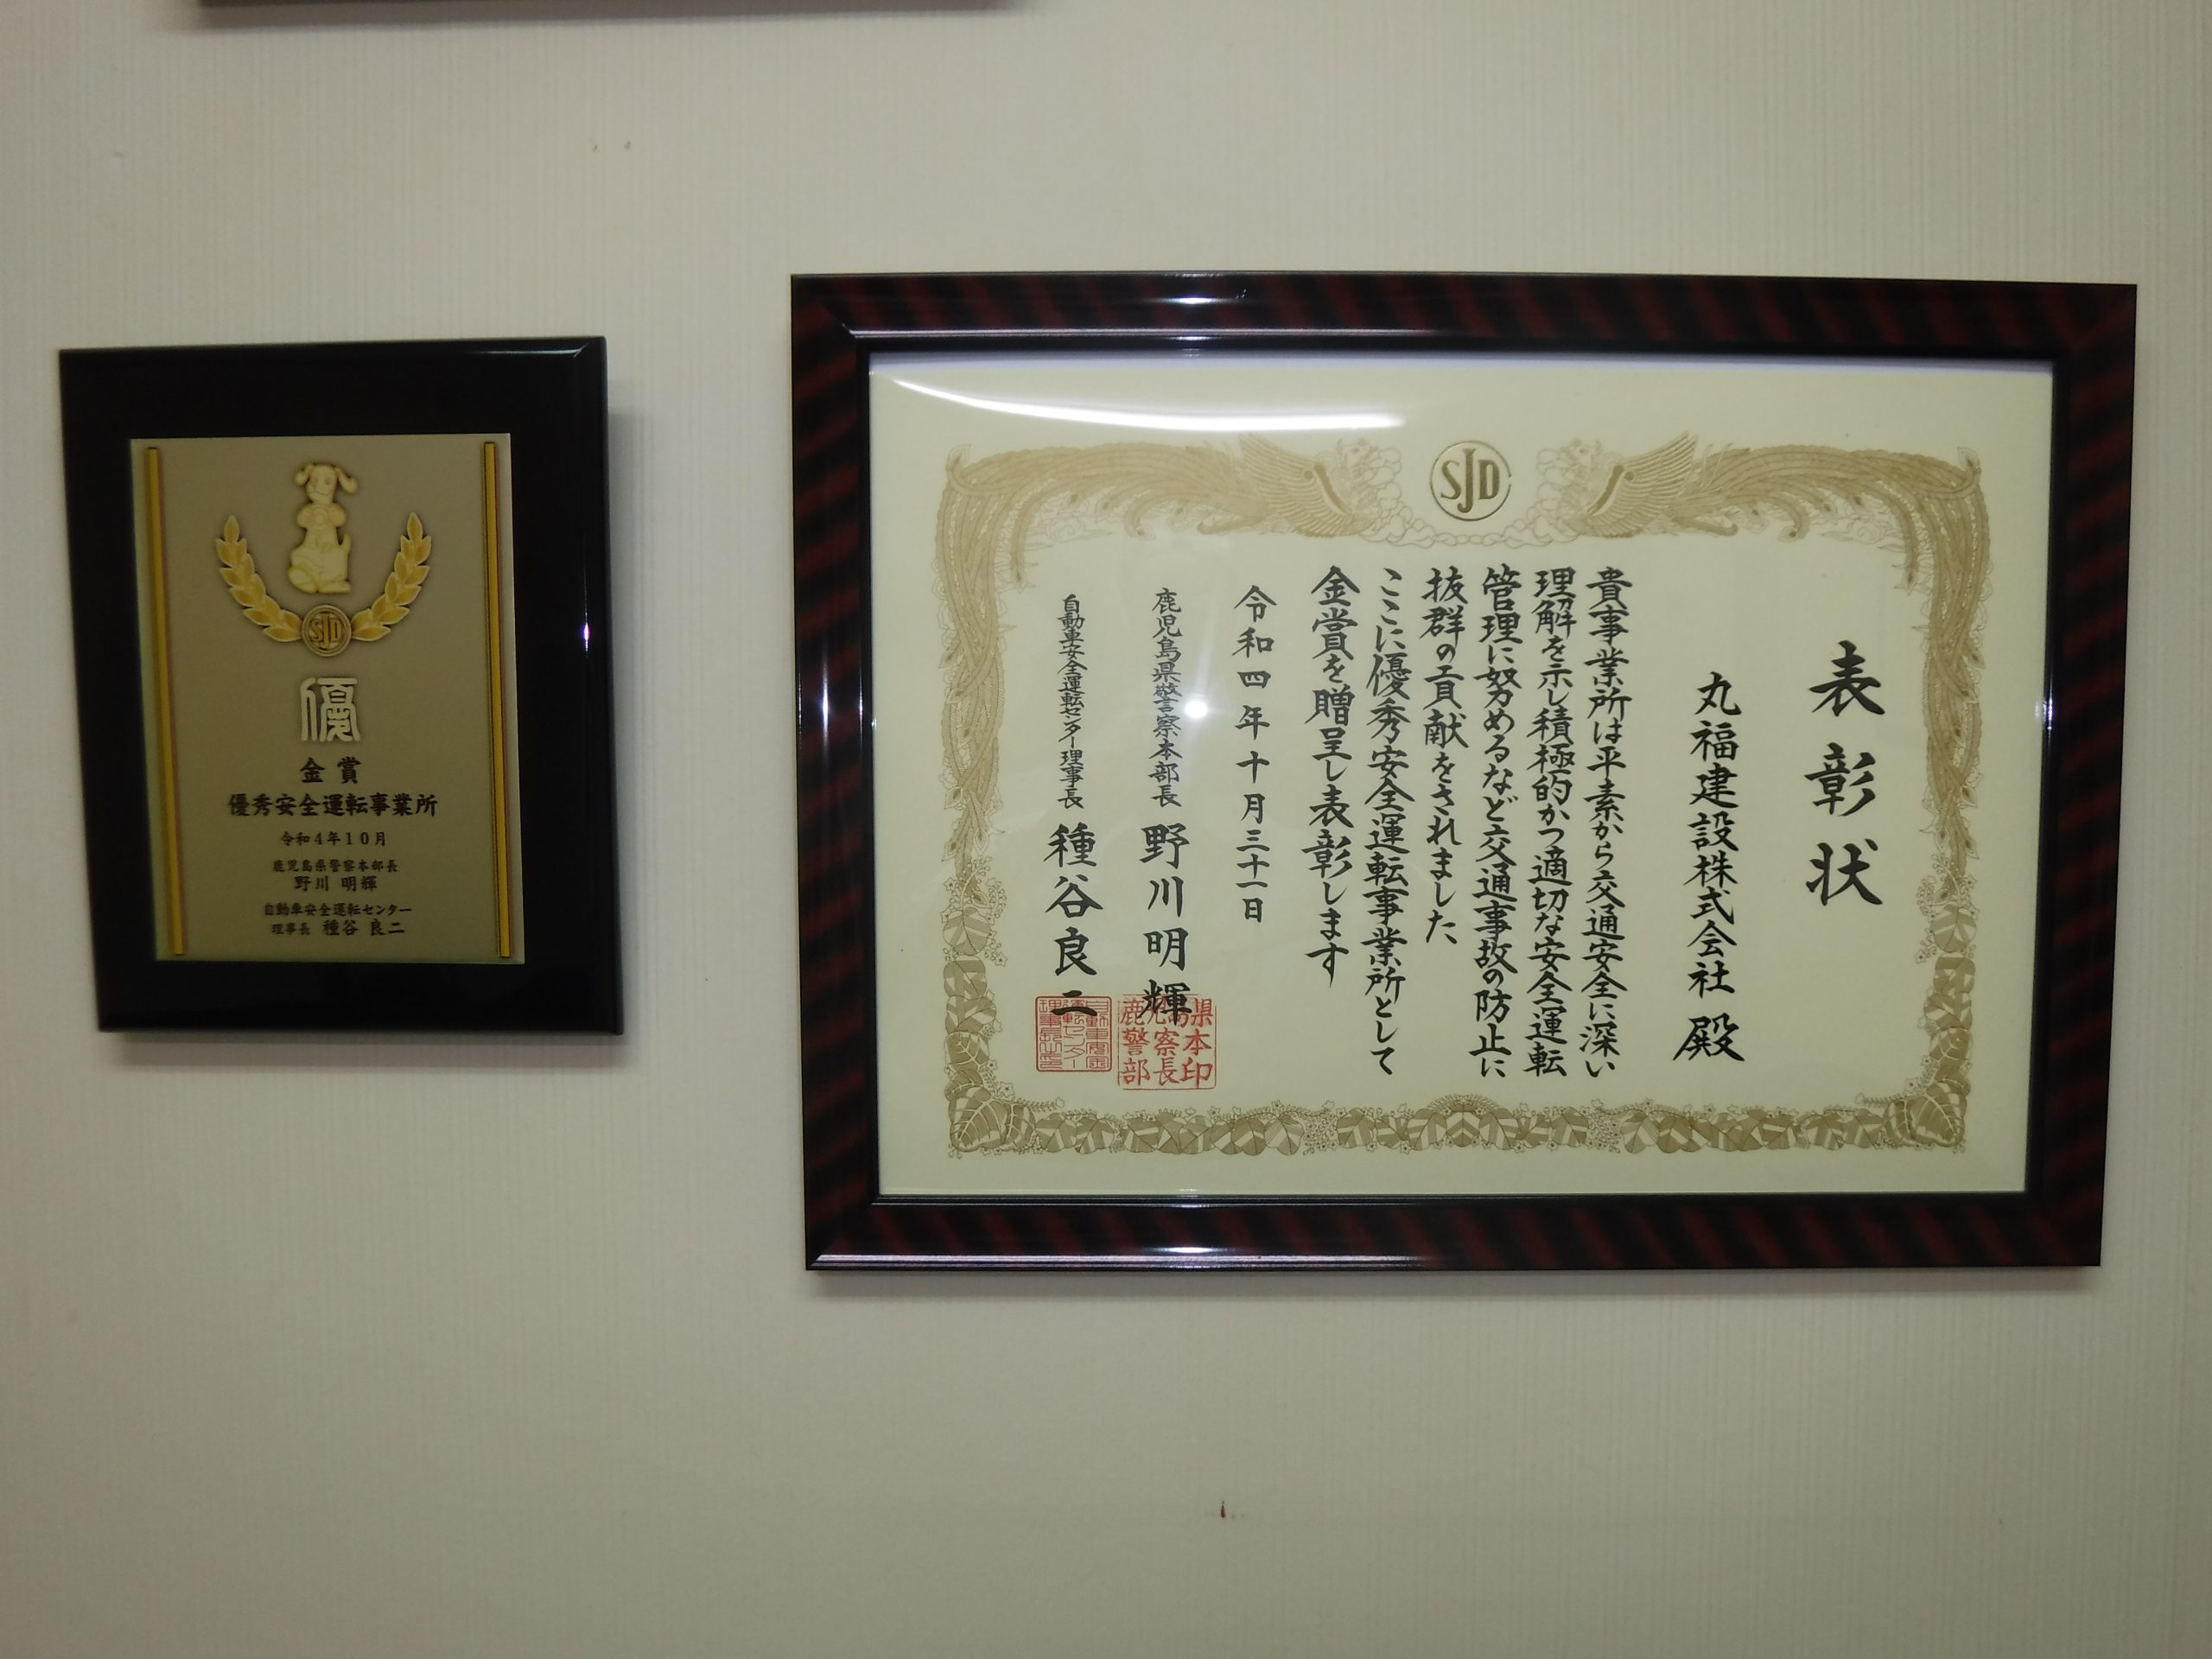 SJD
表彰状
丸福建設株式会社 殿
貴事業所は平素から交通安全に深い
理解を示し積極的かつ適切な安全運転
管理に努めるなど交通事故の防止に
抜群の貢献をされました
ここに優秀安全運転事業所として
金賞を贈呈し表彰します
令和四年十月三十一日
鹿児島県警察本部長 野川明輝
鹿児島県警察本部長印
自動車安全運転センター理事長 種谷良二
自動車安全運転センター理事長之印
SJD
優
金賞
優秀安全運転事業所
令和4年10月
鹿児島県警察本部長
野川 明輝
自動車安全運転センター
理事長 種谷 良二